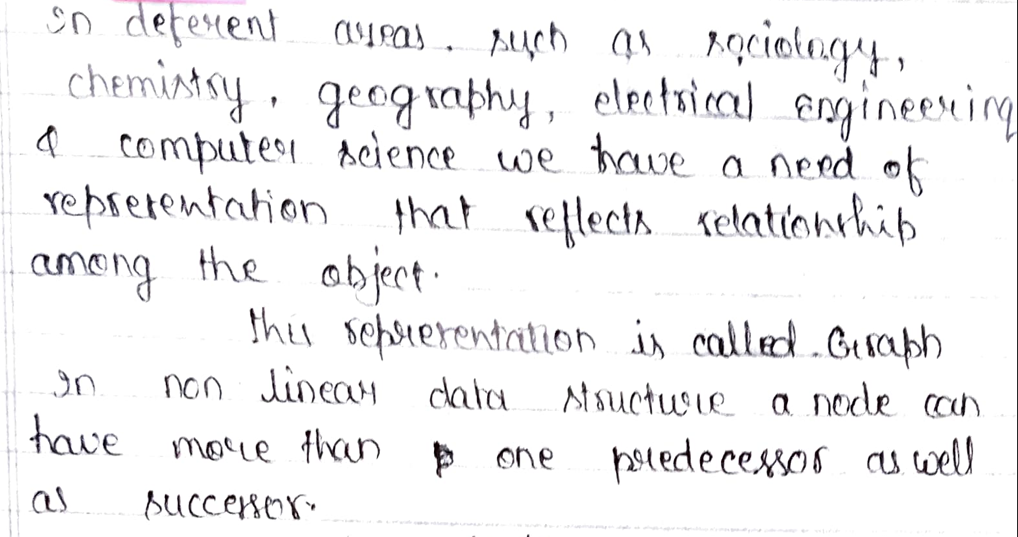 In deferent areas. such as sociology,
chemistry, geography, electrical Engineering
& computer science we have a need of
representation that reflects relationship
among the object.
this representation is called Graph
In non linear data structure a node can
have more than one predecessor as well
as successor.